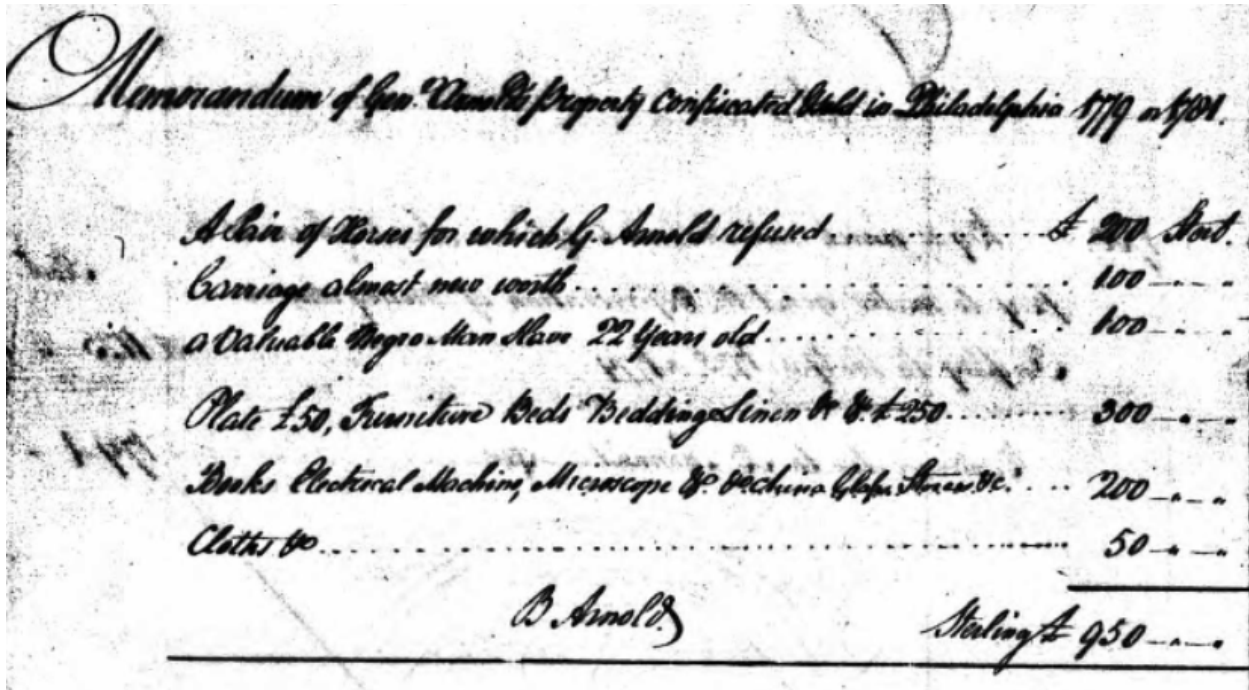 Memorandum of Gen.l Arnold's property confiscated & Sold in Philadelphia 1779 or 1781.
A Pair of Horses for which G. Arnold refused £ 200 Sterl.
Carriage almost new worth 100
a Valuable Negro Man Slave 22 Years old 100
Plate £50, Furniture Beds Bedding Linen &c &c. £250 300
Books Electrical Machine, Microscope &c. &c. china Glass Stores &c. 200
Cloths &c 50
B Arnold
Sterling £ 950